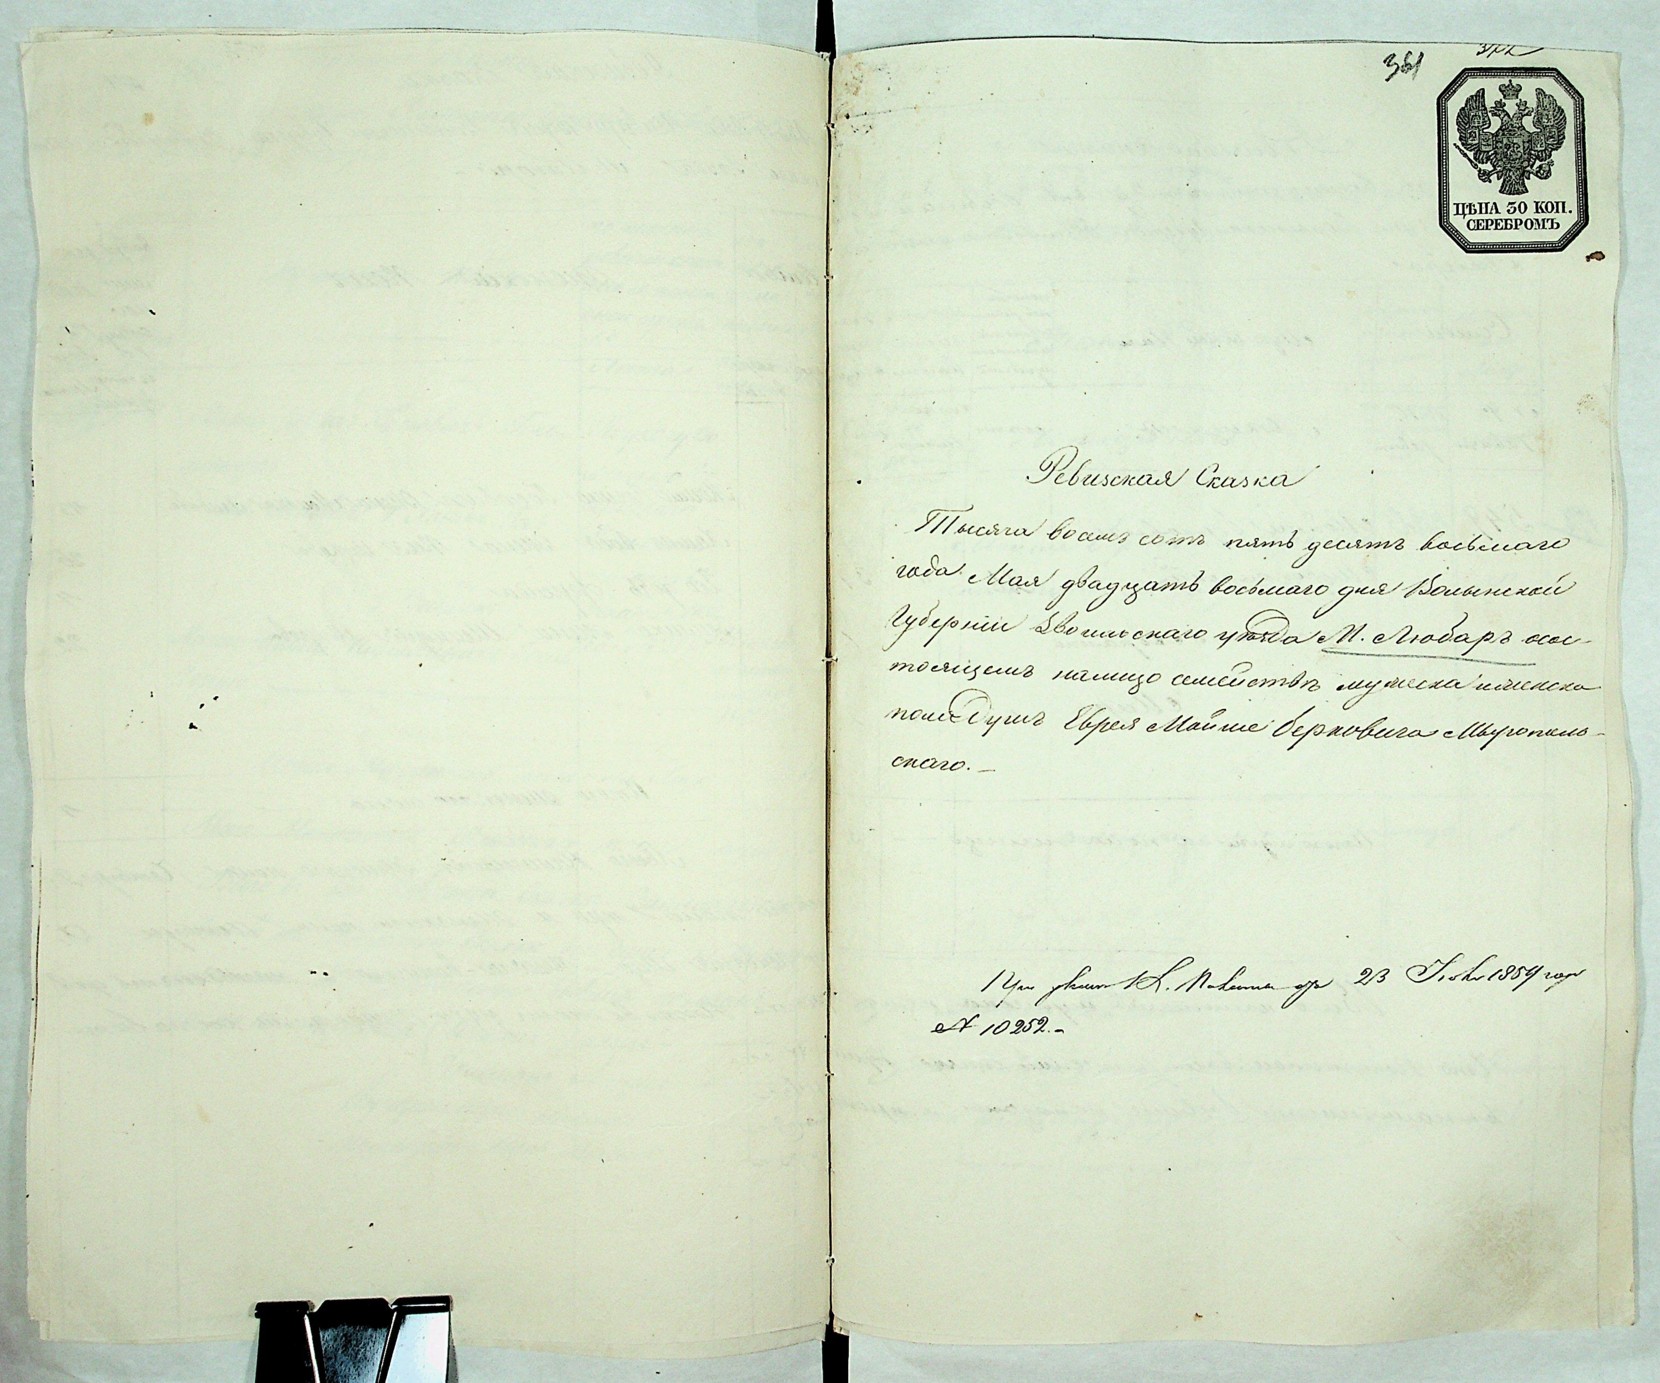 361
ЦѢНА 30 КОП.
СЕРЕБРОМЪ
Ревизская Сказка
Тысяча восемъ сотъ пять десятъ восьмаго
года Мая двадцать восьмаго дня Волынской
Губерніи Звогильскаго уѣзда М. Любаръ сос-
тоящемъ налицо семействѣ мужеска и женска
пола Душъ Еврея Мойше Берковича Мырополь-
скаго.
При 23 1859 года
№ 10252.